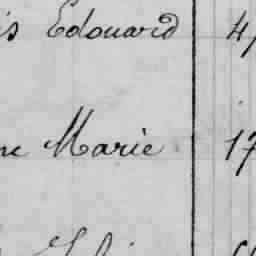 is Edouard 4
ne Marie 17